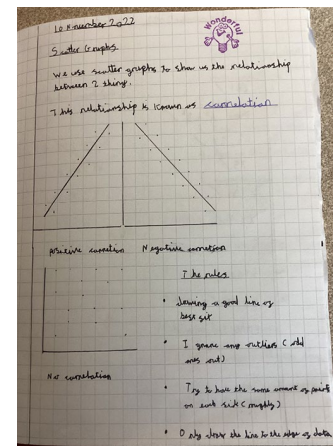 10 November 2022
Wonderful
Scatter Graphs
We use scatter graphs to show us the relationship
between 2 thing.
This relationship is known as correlation
Positive correlation Negative correlation
The rules
• drawing a good line of
best fit
• Ignore any outliers (odd
ones out)
No correlation
• Try to have the same amount of points
on each side (roughly)
• Only draw the line to the edge of data